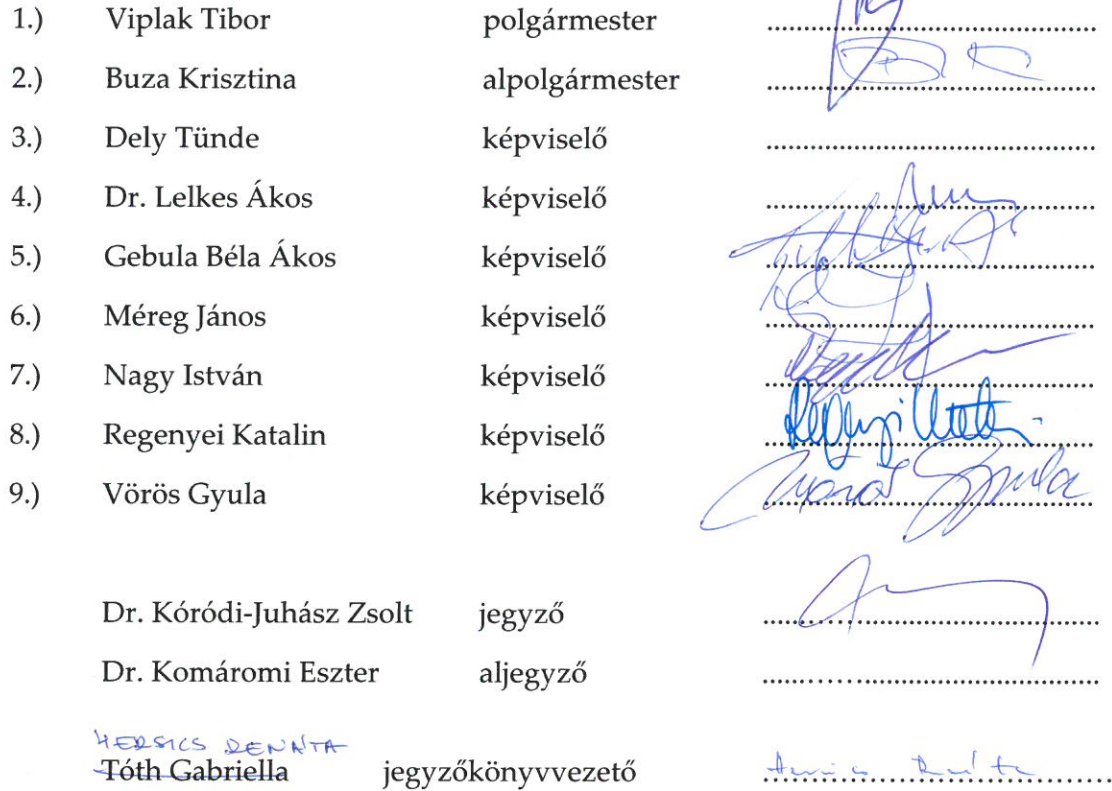 1.) Viplak Tibor polgármester
2.) Buza Krisztina alpolgármester
3.) Dely Tünde képviselő
4.) Dr. Lelkes Ákos képviselő
5.) Gebula Béla Ákos képviselő
6.) Méreg János képviselő
7.) Nagy István képviselő
8.) Regenyei Katalin képviselő
9.) Vörös Gyula képviselő Vörös Gyula
Dr. Kóródi-Juhász Zsolt jegyző
Dr. Komáromi Eszter aljegyző
HERSICS RENÁTA
Tóth Gabriella jegyzőkönyvvezető